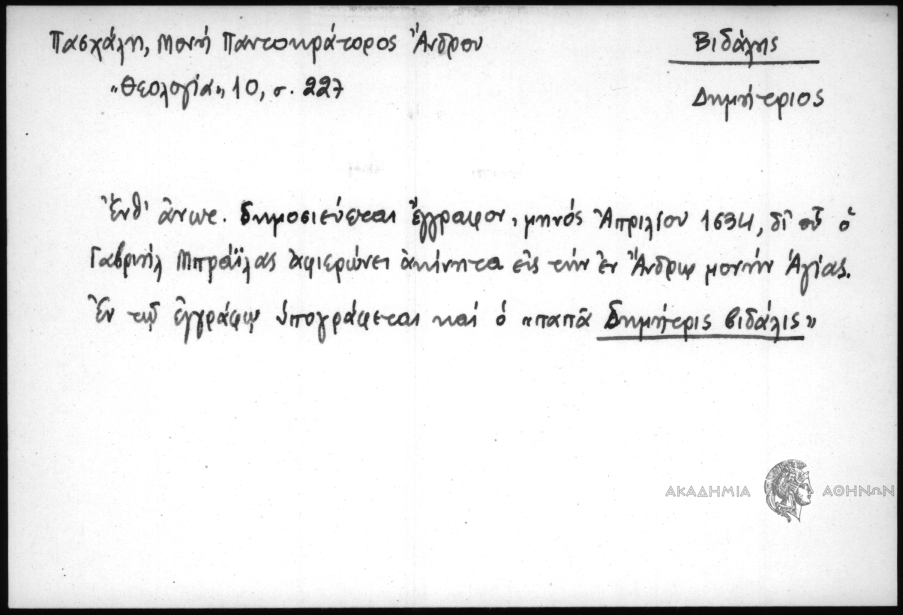 Πασχάλη, Μονή Παντοκράτορος Ἄνδρου
Βιδάλης
«Θεολογία» 10, σ. 227
Δημήτριος
Ἔνθ' ἄνωτ. δημοσιεύεται ἔγγραφον, μηνός Ἀπριλίου 1634, δι' οὗ ὁ
Γαβριήλ Μπράϊλας ἀφιερώνει ἀκίνητα εἰς τήν ἐν Ἄνδρῳ μονήν Ἁγίας.
Ἐν τῷ ἐγγράφῳ ὑπογράφεται καί ὁ «παπᾶ Δημήτρις βιδάλις»
ΑΚΑΔΗΜΙΑ ΑΘΗΝΩΝ